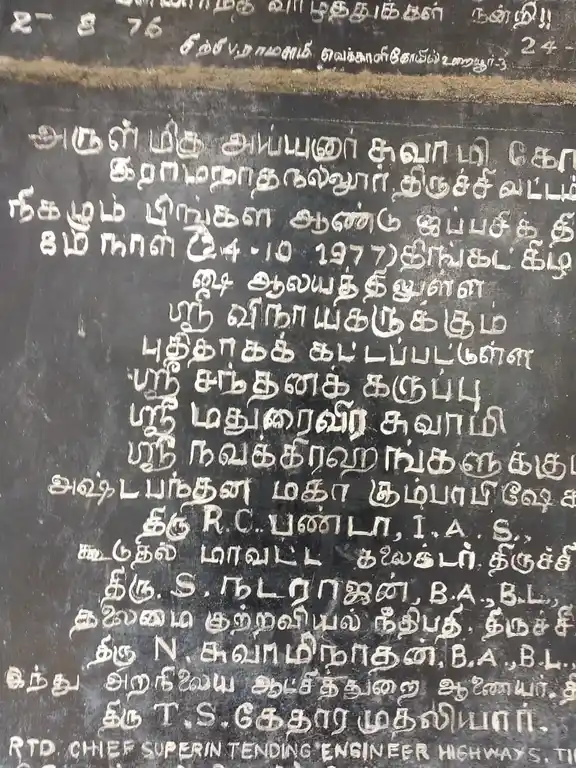 வாழ்த்துக்கள் நன்றி!!
2- 8 76
வெக்காளிகோயில் உறையூர்-3
24-
அருள்மிகு அய்யனார் சுவாமி கோ
இராமநாதநல்லூர், திருச்சி வட்டம்
நிகழும் பிங்கள ஆண்டு ஐப்பசித் தி
8ம் நாள் (24-10 1977) திங்கட் கிழ
ஷை ஆலயத்திலுள்ள
ஸ்ரீ விநாயகருக்கும்
புதிதாகக் கட்டப்பட்டுள்ள
ஸ்ரீ சந்தனக் கருப்பு
ஸ்ரீ மதுரைவீர சுவாமி
ஸ்ரீ நவக்கிரஹங்களுக்கும்
அஷ்டபந்தன மகா கும்பாபிஷேக
திரு R.C. பண்டா, I.A.S.,
கூடுதல் மாவட்ட கலைக்டர். திருச்சி
திரு. S. நடராஜன், B.A., B.L.,
தலைமை குற்றவியல் நீதிபதி, திருச்சி
திரு N. சுவாமிநாதன், B.A., B.L.,
இந்து அறநிலைய ஆட்சித்துறை ஆணையர். தி
திரு T.S. கேதார முதலியார்.
RTD. CHIEF SUPERINTENDING ENGINEER HIGHWAYS. TI